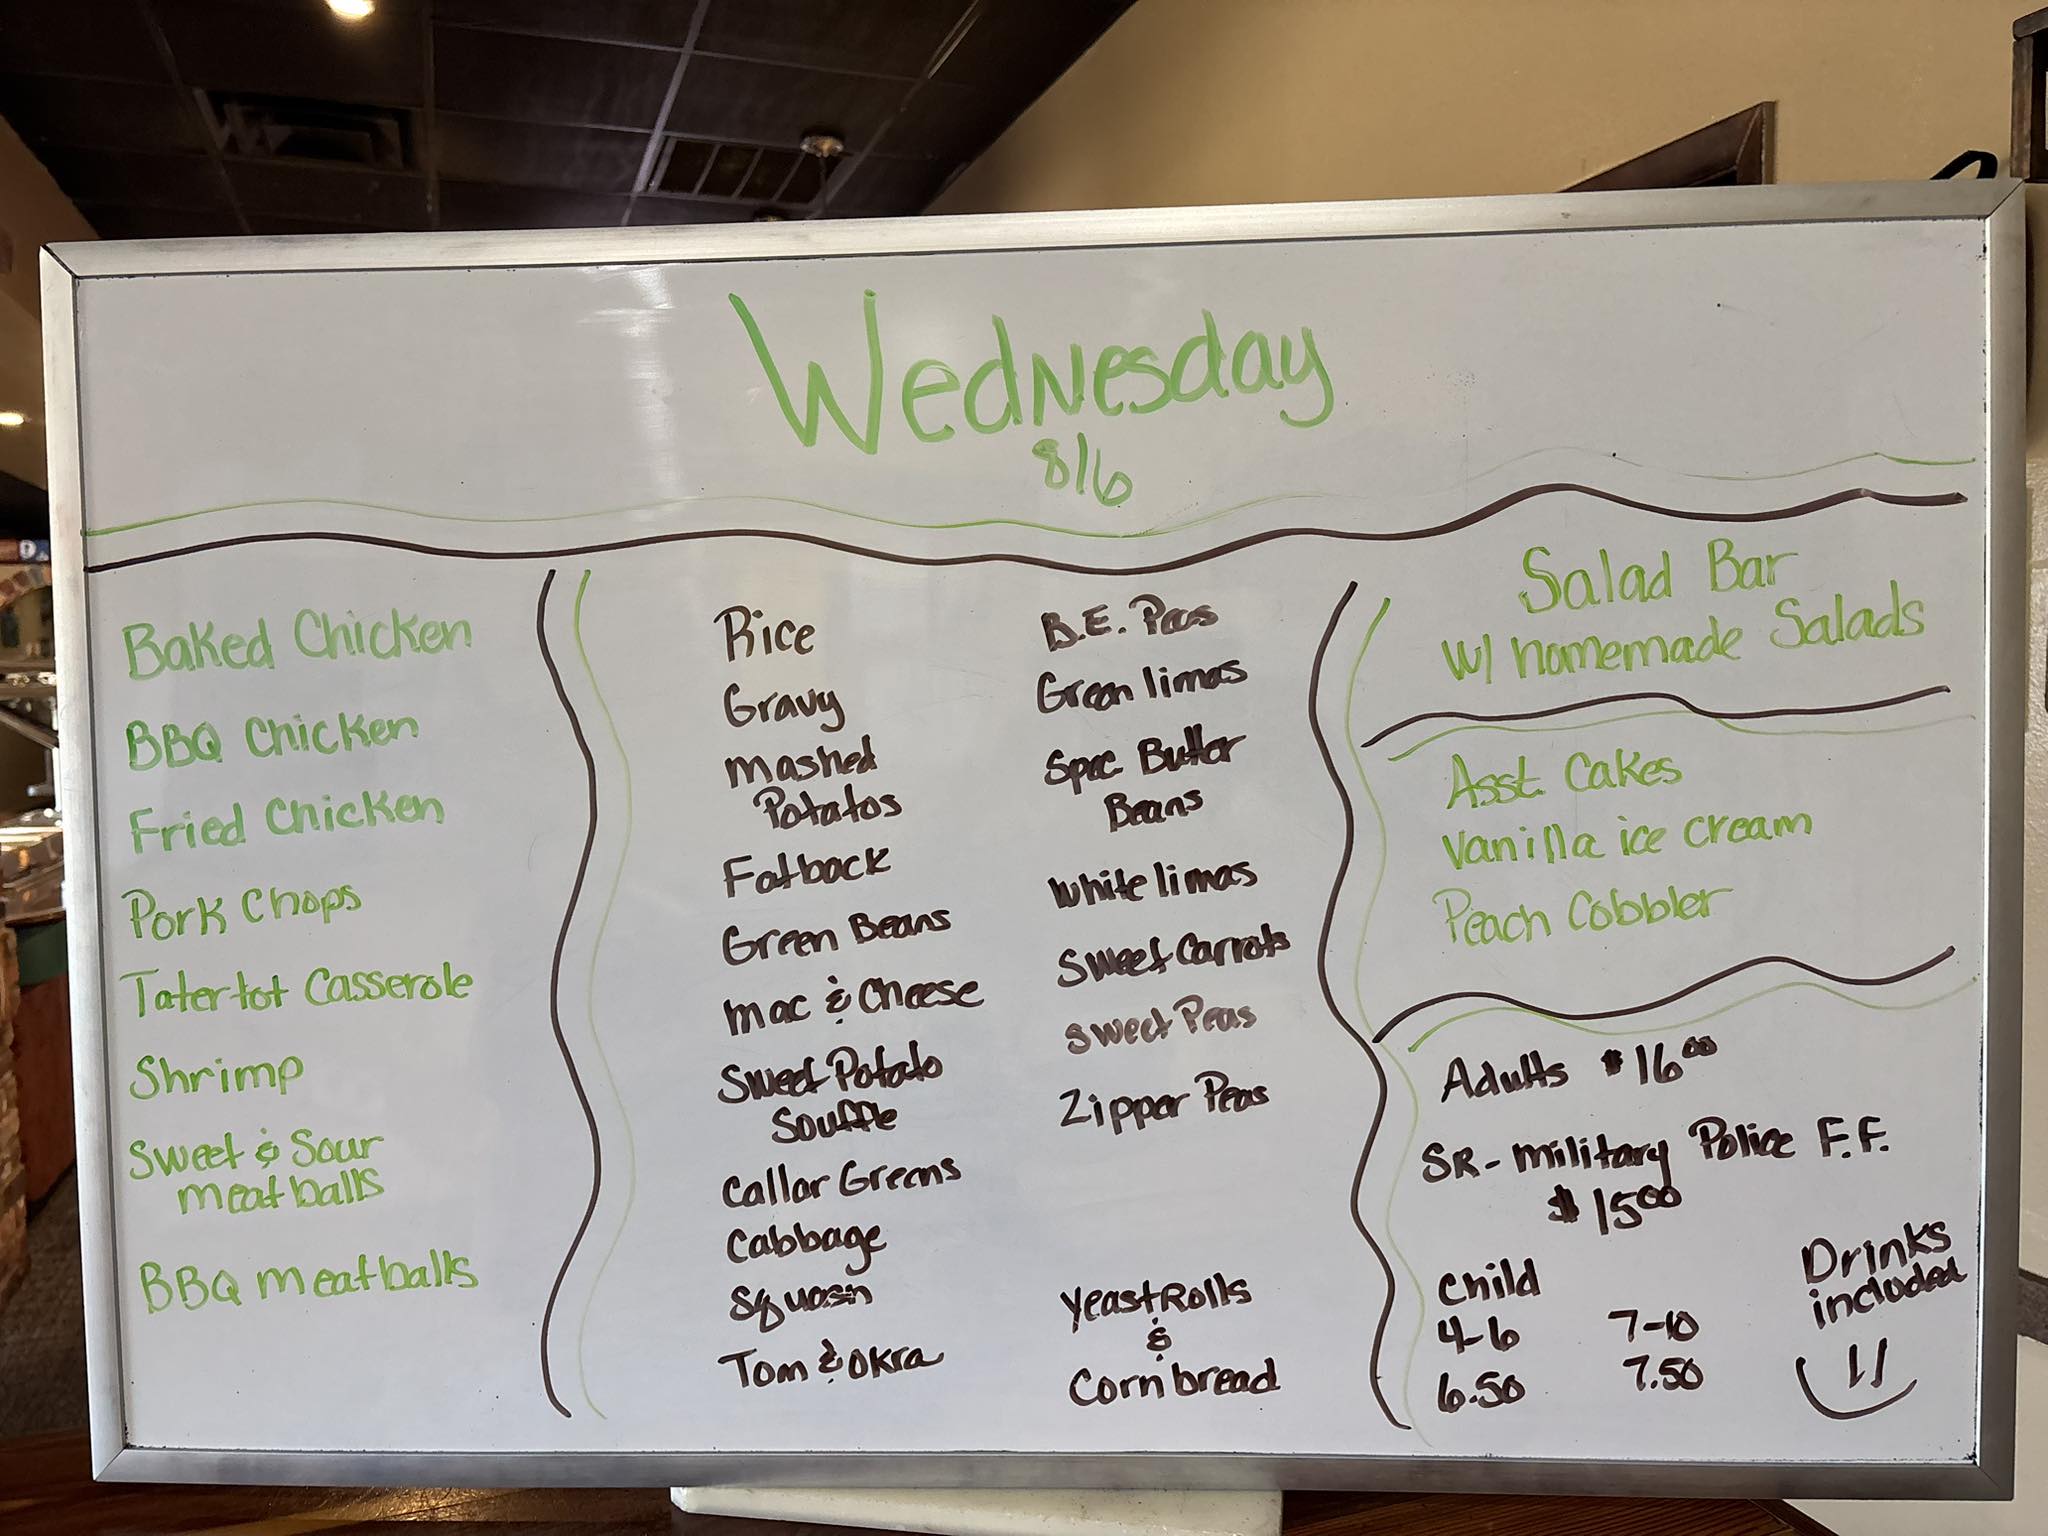 Wednesday
8/6
Baked Chicken
BBQ Chicken
Fried Chicken
Pork Chops
Tatertot Casserole
Shrimp
Sweet & Sour
meatballs
BBQ meatballs
Rice
Gravy
Mashed
Potatos
Fatback
Green Beans
Mac & Cheese
Sweet Potato
Souffle
Collar Greens
Cabbage
Squash
Tom & Okra
B.E. Peas
Green limas
Spec Butter
Beans
White limas
Sweet Carrots
Sweet Peas
Zipper Peas
Yeast Rolls
&
Cornbread
Salad Bar
W/ homemade Salads
Asst. Cakes
Vanilla ice cream
Peach Cobbler
Adults $16.00
SR- Military Police F.F.
$15.00
Child
4-6 7-10
6.50 7.50
Drinks
included